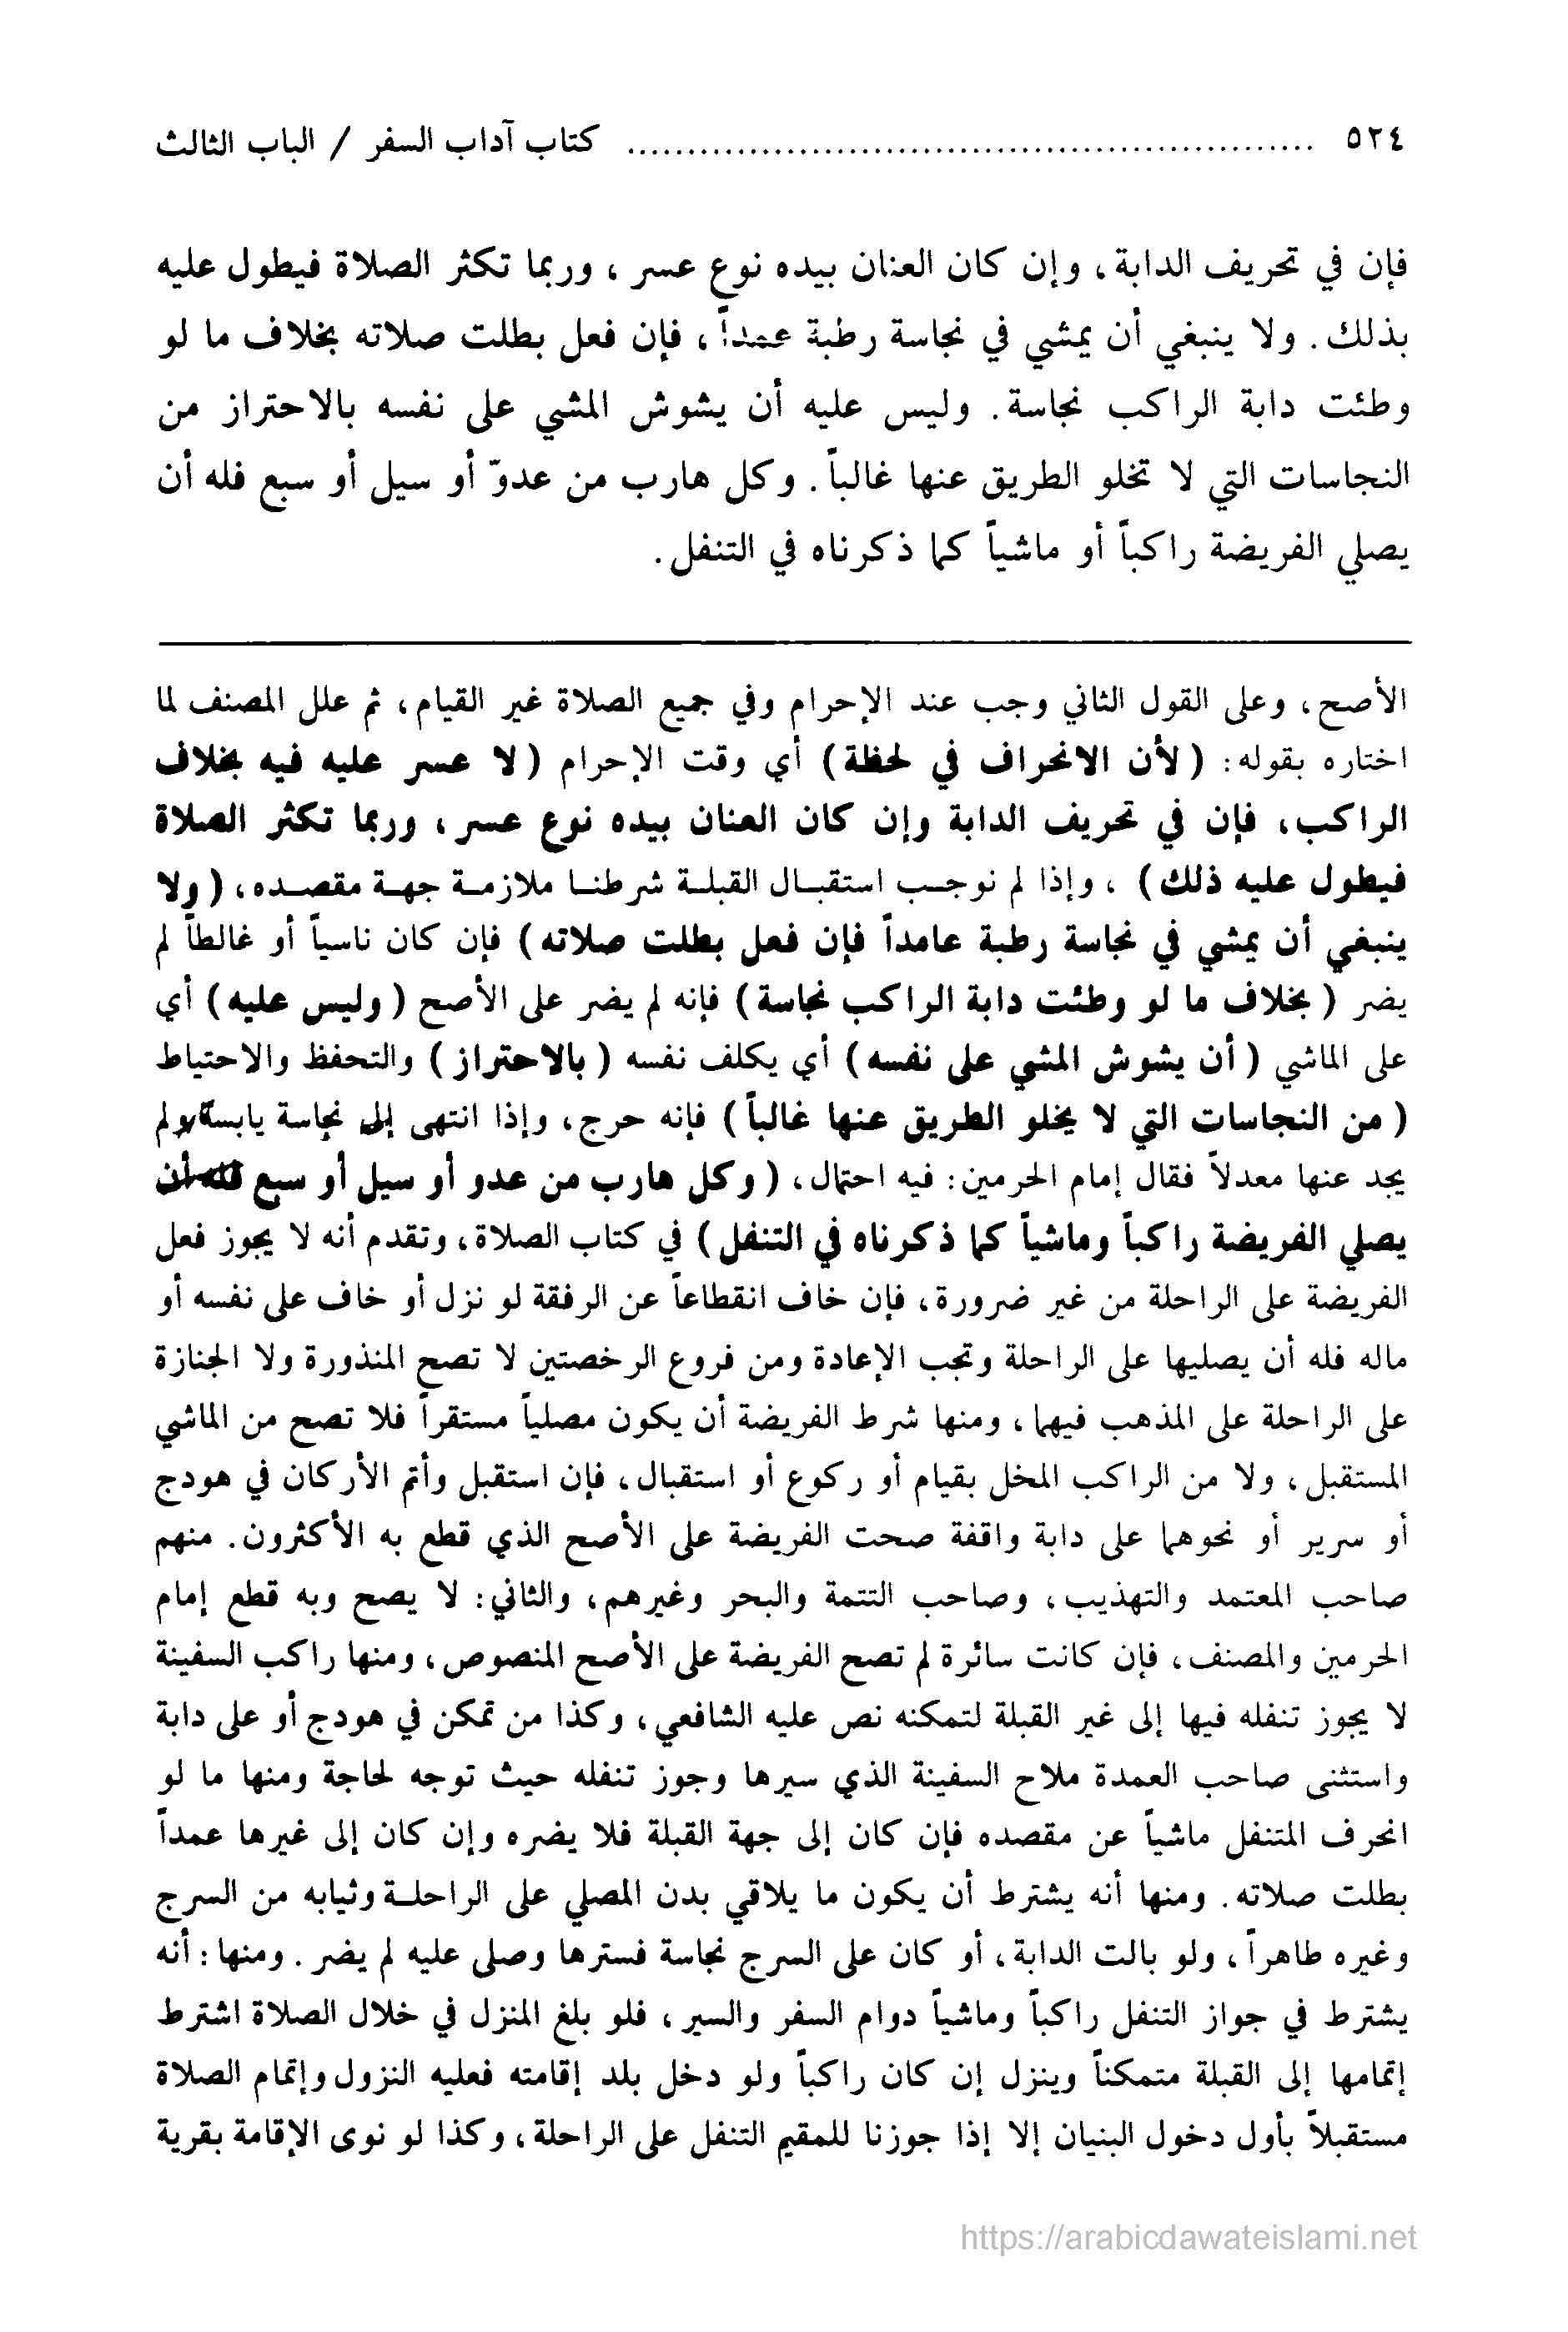 ٥٢٤ ........................................................ كتاب آداب السفر / الباب الثالث
فإن في تحريف الدابة، وإن كان العنان بيده نوع عسر، وربما تكثر الصلاة فيطول عليه
بذلك. ولا ينبغي أن يمشي في نجاسة رطبة عمداً، فإن فعل بطلت صلاته بخلاف ما لو
وطئت دابة الراكب نجاسة. وليس عليه أن يشوش المشي على نفسه بالاحتراز من
النجاسات التي لا تخلو الطريق عنها غالباً. وكل هارب من عدوّ أو سيل أو سبع فله أن
يصلي الفريضة راكباً أو ماشياً كما ذكرناه في التنفل.
الأصح، وعلى القول الثاني وجب عند الإحرام وفي جميع الصلاة غير القيام، ثم علل المصنف لما
اختاره بقوله: (لأن الانحراف في لحظة) أي وقت الإحرام (لا عسر عليه فيه بخلاف
الراكب، فإن في تحريف الدابة وإن كان العنان بيده نوع عسر، وربما تكثر الصلاة
فيطول عليه ذلك)، وإذا لم نوجب استقبال القبلة شرطنا ملازمة جهة مقصده، (ولا
ينبغي أن يمشي في نجاسة رطبة عامداً فإن فعل بطلت صلاته) فإن كان ناسياً أو غالطاً لم
يضر (بخلاف ما لو وطئت دابة الراكب نجاسة) فإنه لم يضر على الأصح (وليس عليه) أي
على الماشي (أن يشوش المشي على نفسه) أي يكلف نفسه (بالاحتراز) والتحفظ والاحتياط
(من النجاسات التي لا يخلو الطريق عنها غالباً) فإنه حرج، وإذا انتهى إلى نجاسة يابسة ولم
يجد عنها معدلاً فقال إمام الحرمين: فيه احتمال، (وكل هارب من عدو أو سيل أو سبع فله أن
يصلي الفريضة راكباً وماشياً كما ذكرناه في التنفل) في كتاب الصلاة، وتقدم أنه لا يجوز فعل
الفريضة على الراحلة من غير ضرورة، فإن خاف انقطاعاً عن الرفقة لو نزل أو خاف على نفسه أو
ماله فله أن يصليها على الراحلة وتجب الإعادة ومن فروع الرخصتين لا تصح المنذورة ولا الجنازة
على الراحلة على المذهب فيهما، ومنها شرط الفريضة أن يكون مصلياً مستقراً فلا تصح من الماشي
المستقبل، ولا من الراكب المخل بقيام أو ركوع أو استقبال، فإن استقبل وأتم الأركان في هودج
أو سرير أو نحوهما على دابة واقفة صحت الفريضة على الأصح الذي قطع به الأكثرون. منهم
صاحب المعتمد والتهذيب، وصاحب التتمة والبحر وغيرهم، والثاني: لا يصح وبه قطع إمام
الحرمين والمصنف، فإن كانت سائرة لم تصح الفريضة على الأصح المنصوص، ومنها راكب السفينة
لا يجوز تنفله فيها إلى غير القبلة لتمكنه نص عليه الشافعي، وكذا من تمكن في هودج أو على دابة
واستثنى صاحب العمدة ملاح السفينة الذي سيرها وجوز تنفله حيث توجه لحاجة ومنها ما لو
انحرف المتنفل ماشياً عن مقصده فإن كان إلى جهة القبلة فلا يضره وإن كان إلى غيرها عمداً
بطلت صلاته. ومنها أنه يشترط أن يكون ما يلاقي بدن المصلي على الراحلة وثيابه من السرج
وغيره طاهراً، ولو بالت الدابة، أو كان على السرج نجاسة فسترها وصلى عليه لم يضر. ومنها: أنه
يشترط في جواز التنفل راكباً وماشياً دوام السفر والسير، فلو بلغ المنزل في خلال الصلاة اشترط
إتمامها إلى القبلة متمكناً وينزل إن كان راكباً ولو دخل بلد إقامته فعليه النزول وإتمام الصلاة
مستقبلاً بأول دخول البنيان إلا إذا جوزنا للمقيم التنفل على الراحلة، وكذا لو نوى الإقامة بقرية
https://arabicdawateislami.net